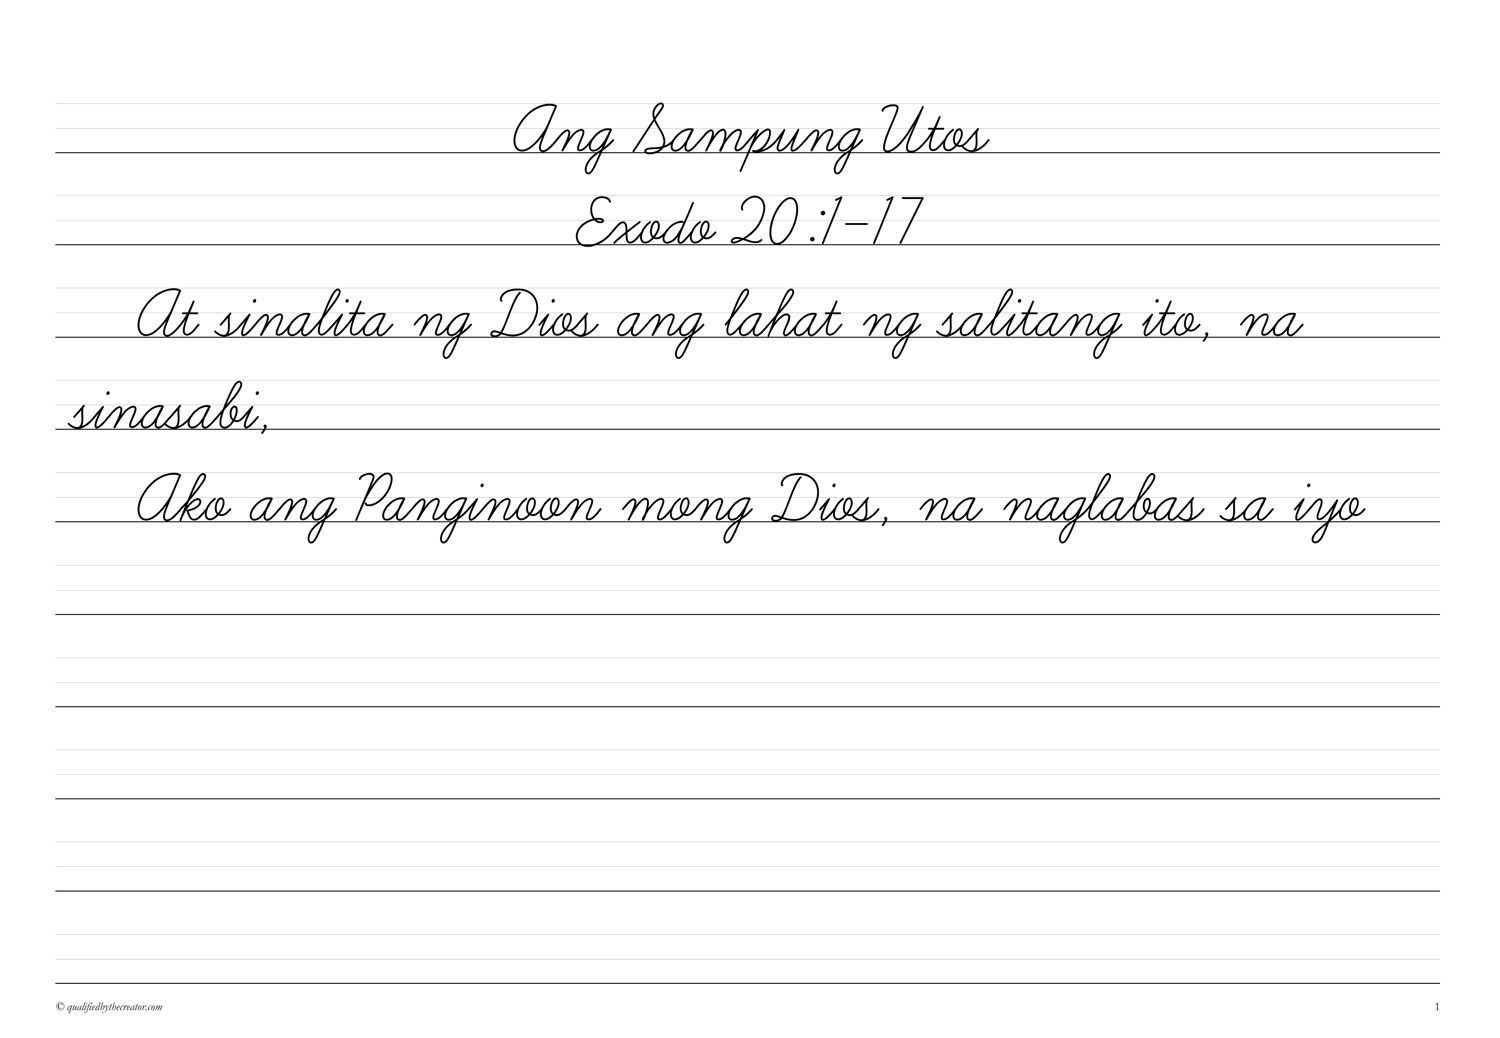 Ang Sampung Utos
Exodo 20:1-17
At sinalita ng Dios ang lahat ng salitang ito, na
sinasabi,
Ako ang Panginoon mong Dios, na naglabas sa iyo
© qualifiedbythecreator.com
1